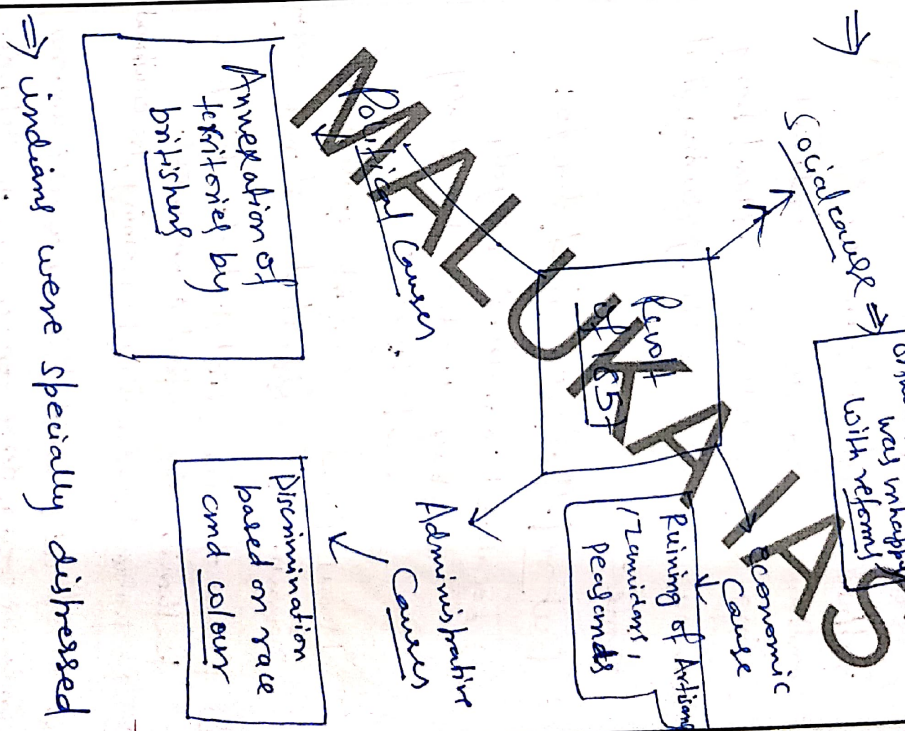 ⇒
Social cause ⇒
was unhappy
with reforms
Revolt
of 1857
Economic
Cause
Ruining of Artisans
, Zamindars,
peasants
Political Causes
Annexation of
territories by
britishers
Administrative
Causes
Discrimination
based on race
and colour
⇒ indians were specially distressed
MALUKA IAS